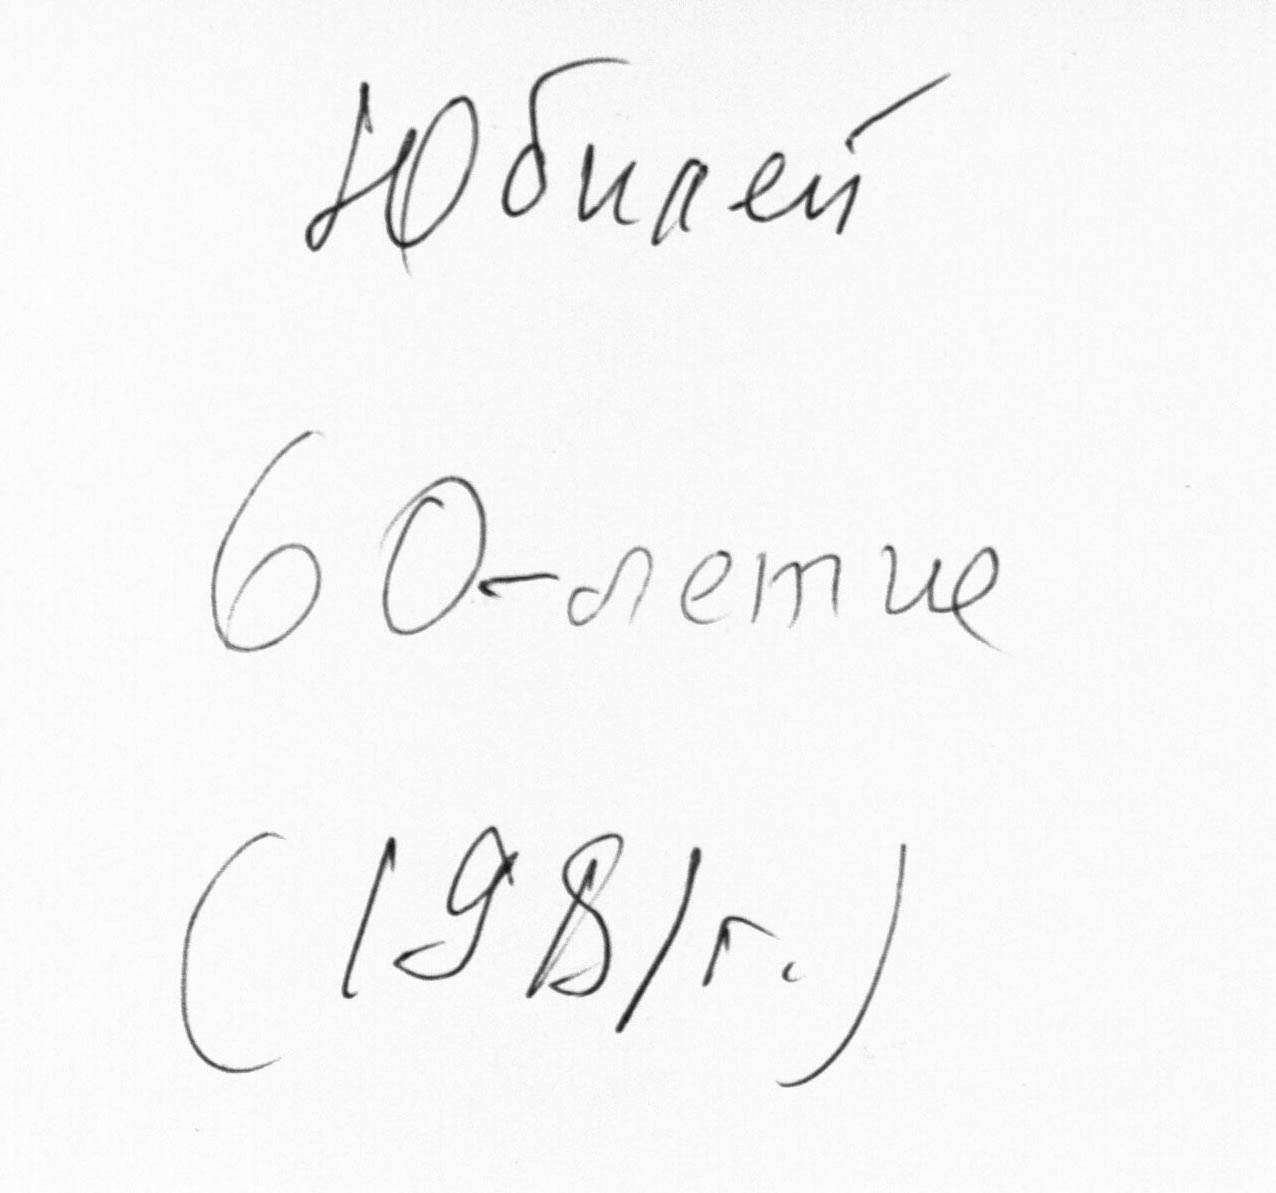 Юбилей
60-летие
(1981г.)